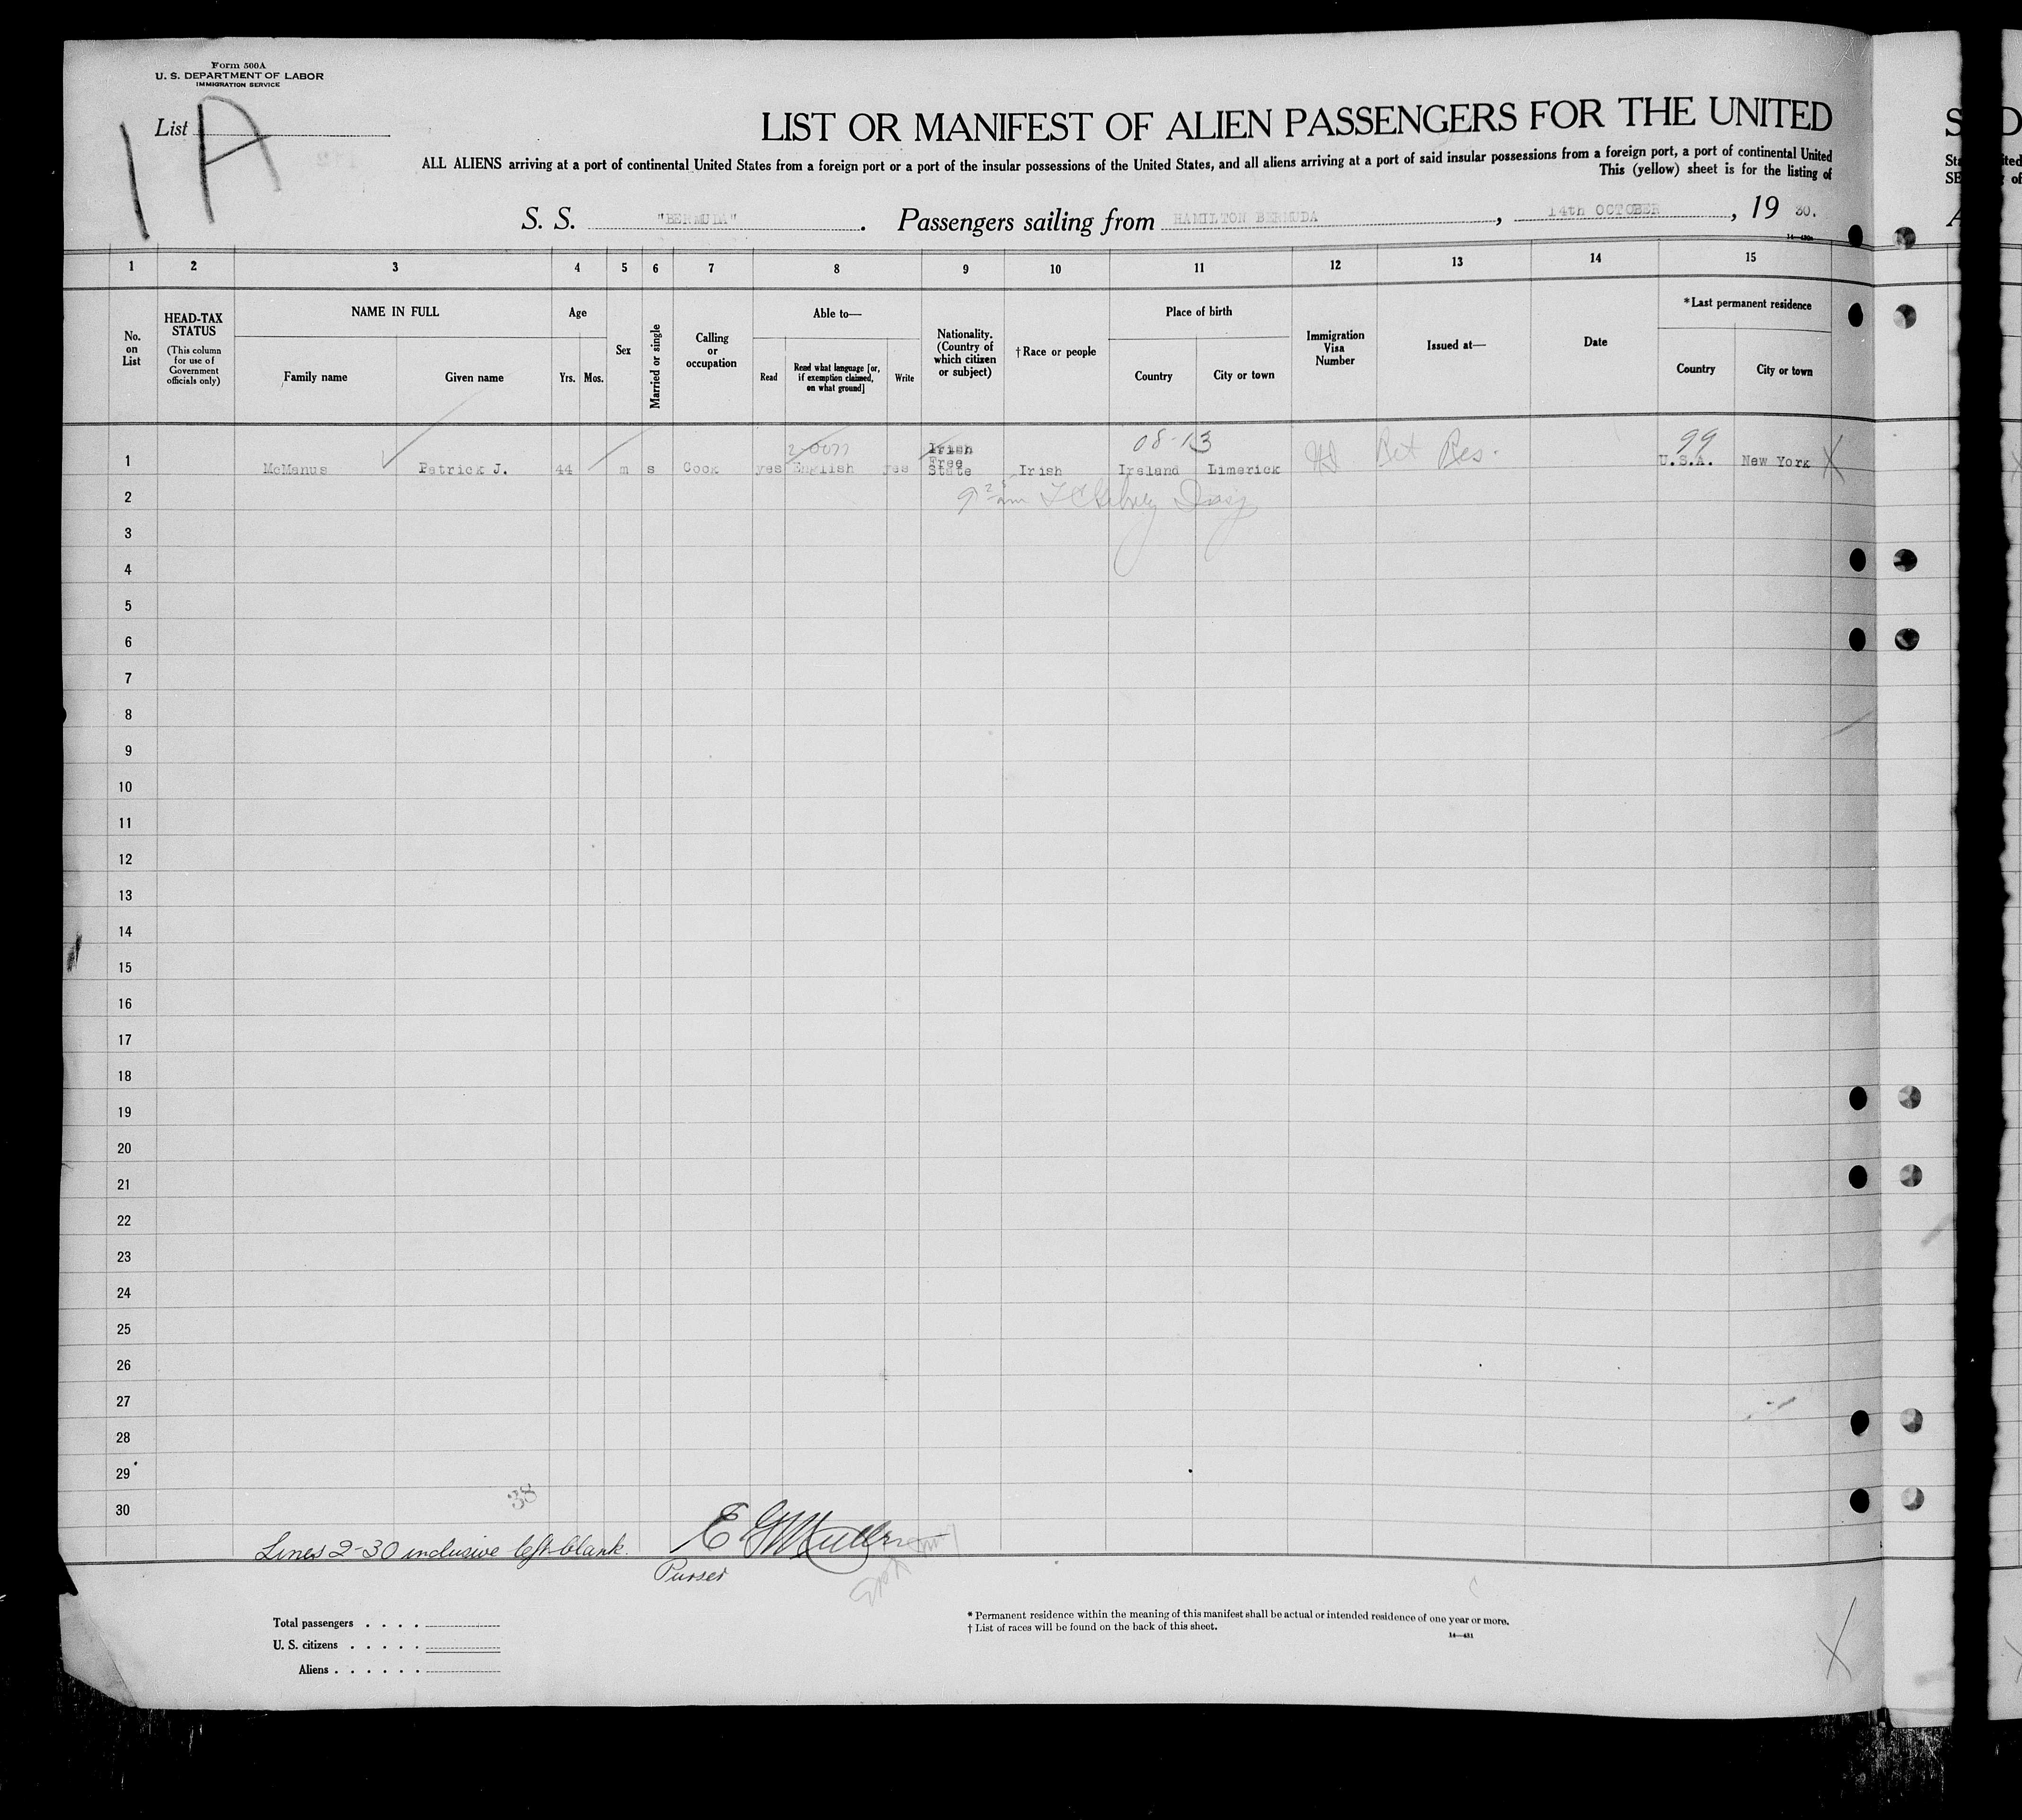 Form 500A
U. S. DEPARTMENT OF LABOR
IMMIGRATION SERVICE
List 1A
LIST OR MANIFEST OF ALIEN PASSENGERS FOR THE UNITED
ALL ALIENS arriving at a port of continental United States from a foreign port or a port of the insular possessions of the United States, and all aliens arriving at a port of said insular possessions from a foreign port, a port of continental United
This (yellow) sheet is for the listing of
S. S. "BERMUDA". Passengers sailing from HAMILTON BERMUDA, 14th OCTOBER, 19 30.
1 2 3 4 5 6 7 8 9 10 11 12 13 14 15
No. on List
HEAD-TAX STATUS (This column for use of Government officials only)
NAME IN FULL
Family name Given name
Age
Yrs. Mos.
Sex
Married or single
Calling or occupation
Able to—
Read
Read what language [or, if exemption claimed, on what ground]
Write
Nationality. (Country of which citizen or subject)
†Race or people
Place of birth
Country City or town
Immigration Visa Number
Issued at—
Date
*Last permanent residence
Country City or town
08-13 99
1 McManus Patrick J. 44 m s Cook yes English yes Irish Free State Irish Ireland Limerick Ret Res. U.S.A. New York X
2
3
4
5
6
7
8
9
10
11
12
13
14
15
16
17
18
19
20
21
22
23
24
25
26
27
28
29
30
38
Lines 2-30 inclusive left blank.
Purser
Total passengers
U. S. citizens
Aliens
* Permanent residence within the meaning of this manifest shall be actual or intended residence of one year or more.
† List of races will be found on the back of this sheet.
14—431
X